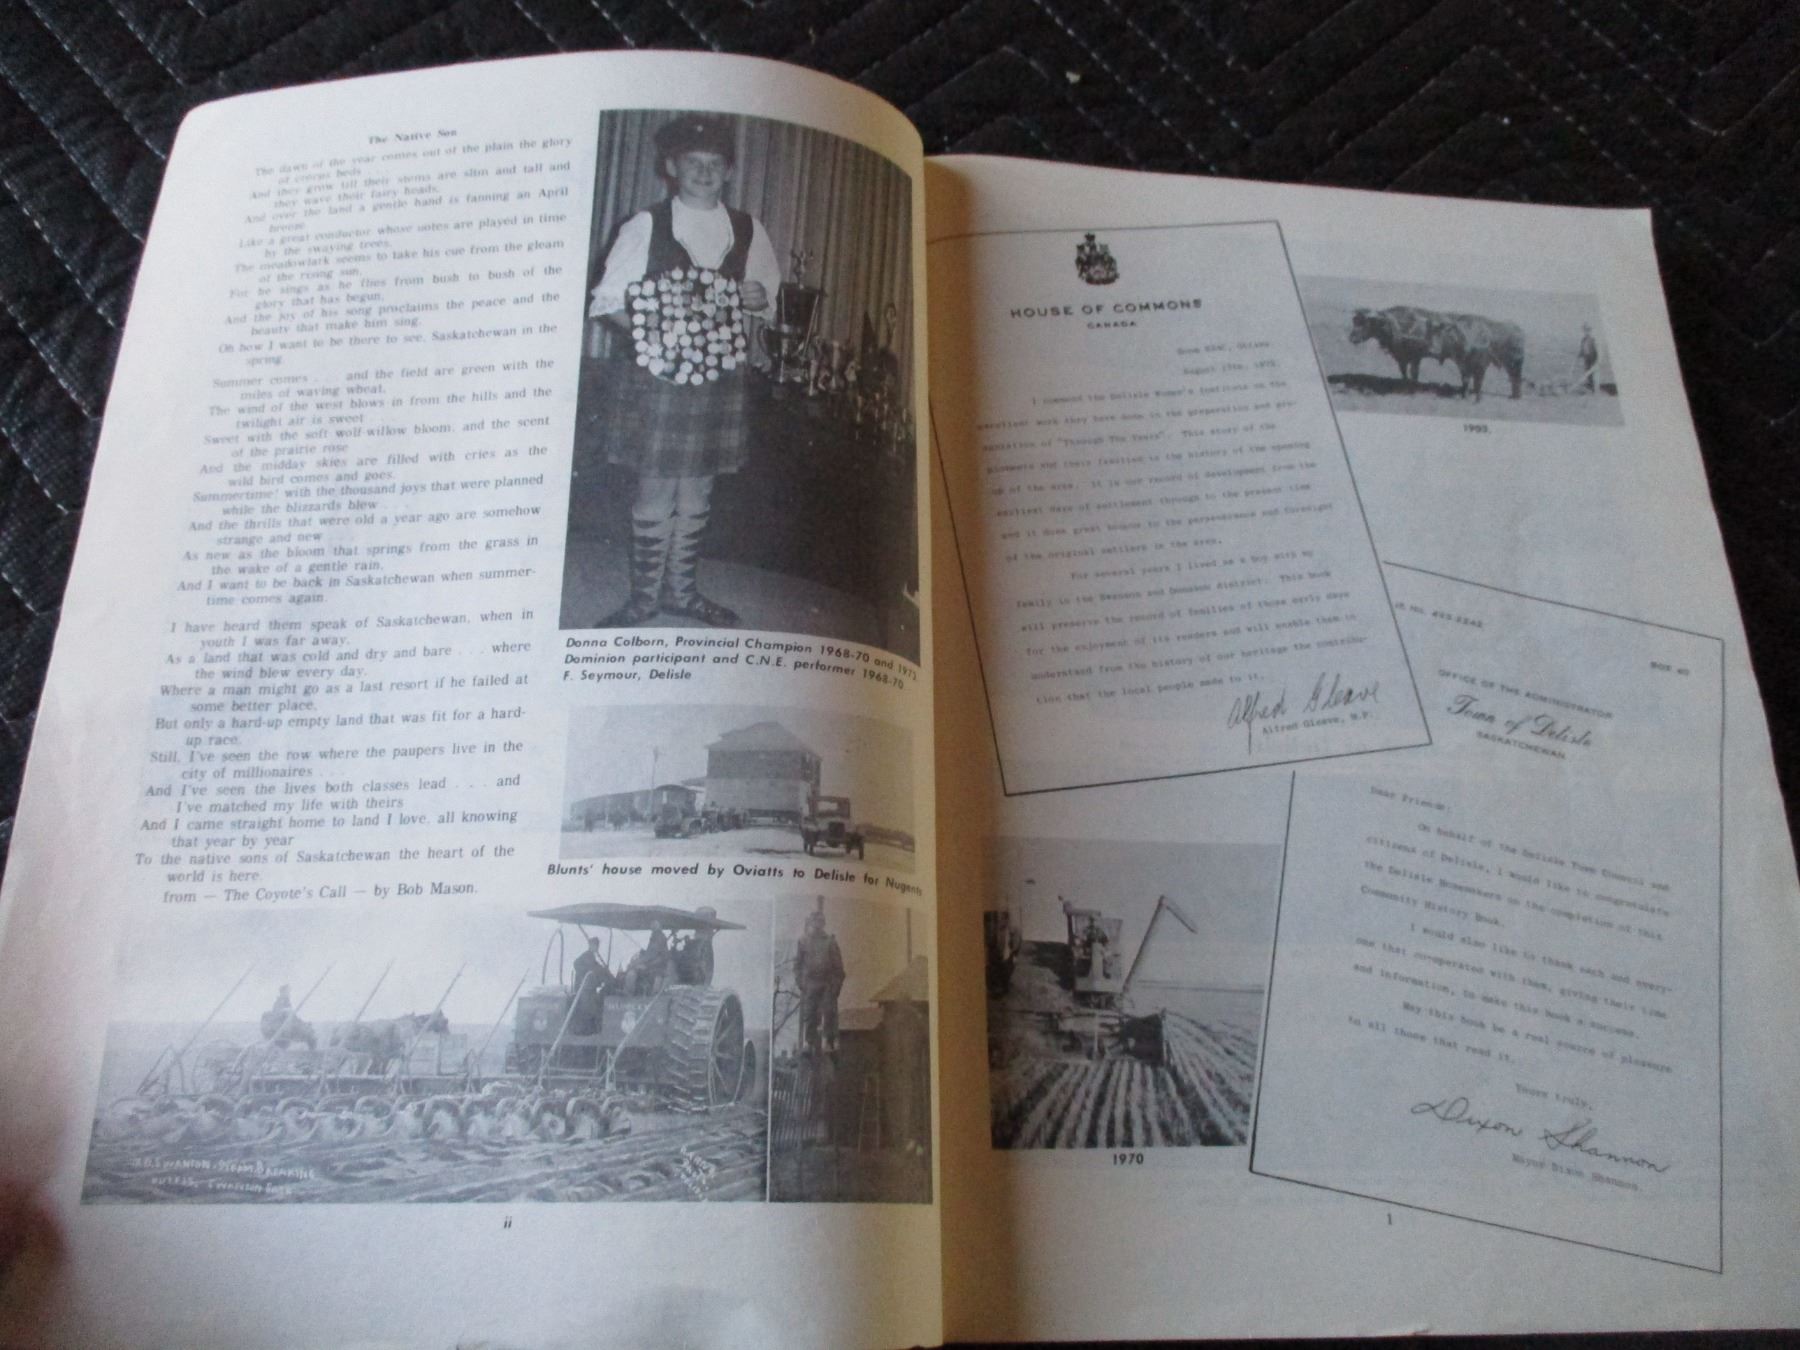 The Native Son
The dawn of the year comes out of the plain the glory
of crocus beds . . .
And they grow till their stems are slim and tall and
they wave their fairy heads.
And over the land a gentle hand is fanning an April
breeze
Like a great conductor whose notes are played in time
by the swaying trees.
The meadowlark seems to take his cue from the gleam
of the rising sun,
For he sings as he flies from bush to bush of the
glory that has begun,
And the joy of his song proclaims the peace and the
beauty that make him sing.
Oh how I want to be there to see, Saskatchewan in the
spring.
Summer comes . . . and the field are green with the
miles of waving wheat,
The wind of the west blows in from the hills and the
twilight air is sweet
Sweet with the soft wolf-willow bloom, and the scent
of the prairie rose
And the midday skies are filled with cries as the
wild bird comes and goes.
Summertime! with the thousand joys that were planned
while the blizzards blew . . .
And the thrills that were old a year ago are somehow
strange and new . . .
As new as the bloom that springs from the grass in
the wake of a gentle rain,
And I want to be back in Saskatchewan when summer-
time comes again.
I have heard them speak of Saskatchewan, when in
youth I was far away,
As a land that was cold and dry and bare . . . where
the wind blew every day.
Where a man might go as a last resort if he failed at
some better place,
But only a hard-up empty land that was fit for a hard-
up race.
Still, I've seen the row where the paupers live in the
city of millionaires . . .
And I've seen the lives both classes lead . . . and
I've matched my life with theirs
And I came straight home to land I love, all knowing
that year by year
To the native sons of Saskatchewan the heart of the
world is here.
from — The Coyote's Call — by Bob Mason.
Donna Colborn, Provincial Champion 1968-70 and 1972
Dominion participant and C.N.E. performer 1968-70
F. Seymour, Delisle
Blunts' house moved by Oviatts to Delisle for Nugents
SWANSON STEAM BREAKING
OUTFIT, SWANSON SASK
ii
HOUSE OF COMMONS
CANADA
Ottawa,
August 17th, 1972.
I commend the Delisle Women's Institute on the
excellent work they have done in the preparation and pre-
sentation of "Through The Years". This story of the
pioneers and their families is the history of the opening
up of the area. It is our record of development from the
earliest days of settlement through to the present time
and it does great honour to the perseverance and foresight
of the original settlers in the area.
For several years I lived as a boy with my
family in the Swanson and Donavon district. This book
will preserve the record of families of those early days
for the enjoyment of its readers and will enable them to
understand from the history of our heritage the contribu-
tion that the local people made to it.
Alfred Gleave
Alfred Gleave, M.P.
1903.
1970
BOX 40
OFFICE OF THE ADMINISTRATOR
Town of Delisle
SASKATCHEWAN
Dear Friends:
On behalf of the Delisle Town Council and
citizens of Delisle, I would like to congratulate
the Delisle Homemakers on the completion of this
Community History Book.
I would also like to thank each and every-
one that co-operated with them, giving their time
and information, to make this book a success.
May this book be a real source of pleasure
to all those that read it.
Yours truly,
Dixon Shannon
Mayor Dixon Shannon.
1